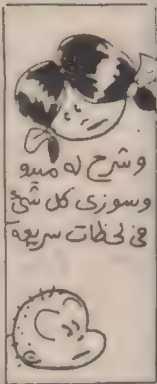 وشرح له ميدو
وسوزى كل شئ
فى لحظات سريعة